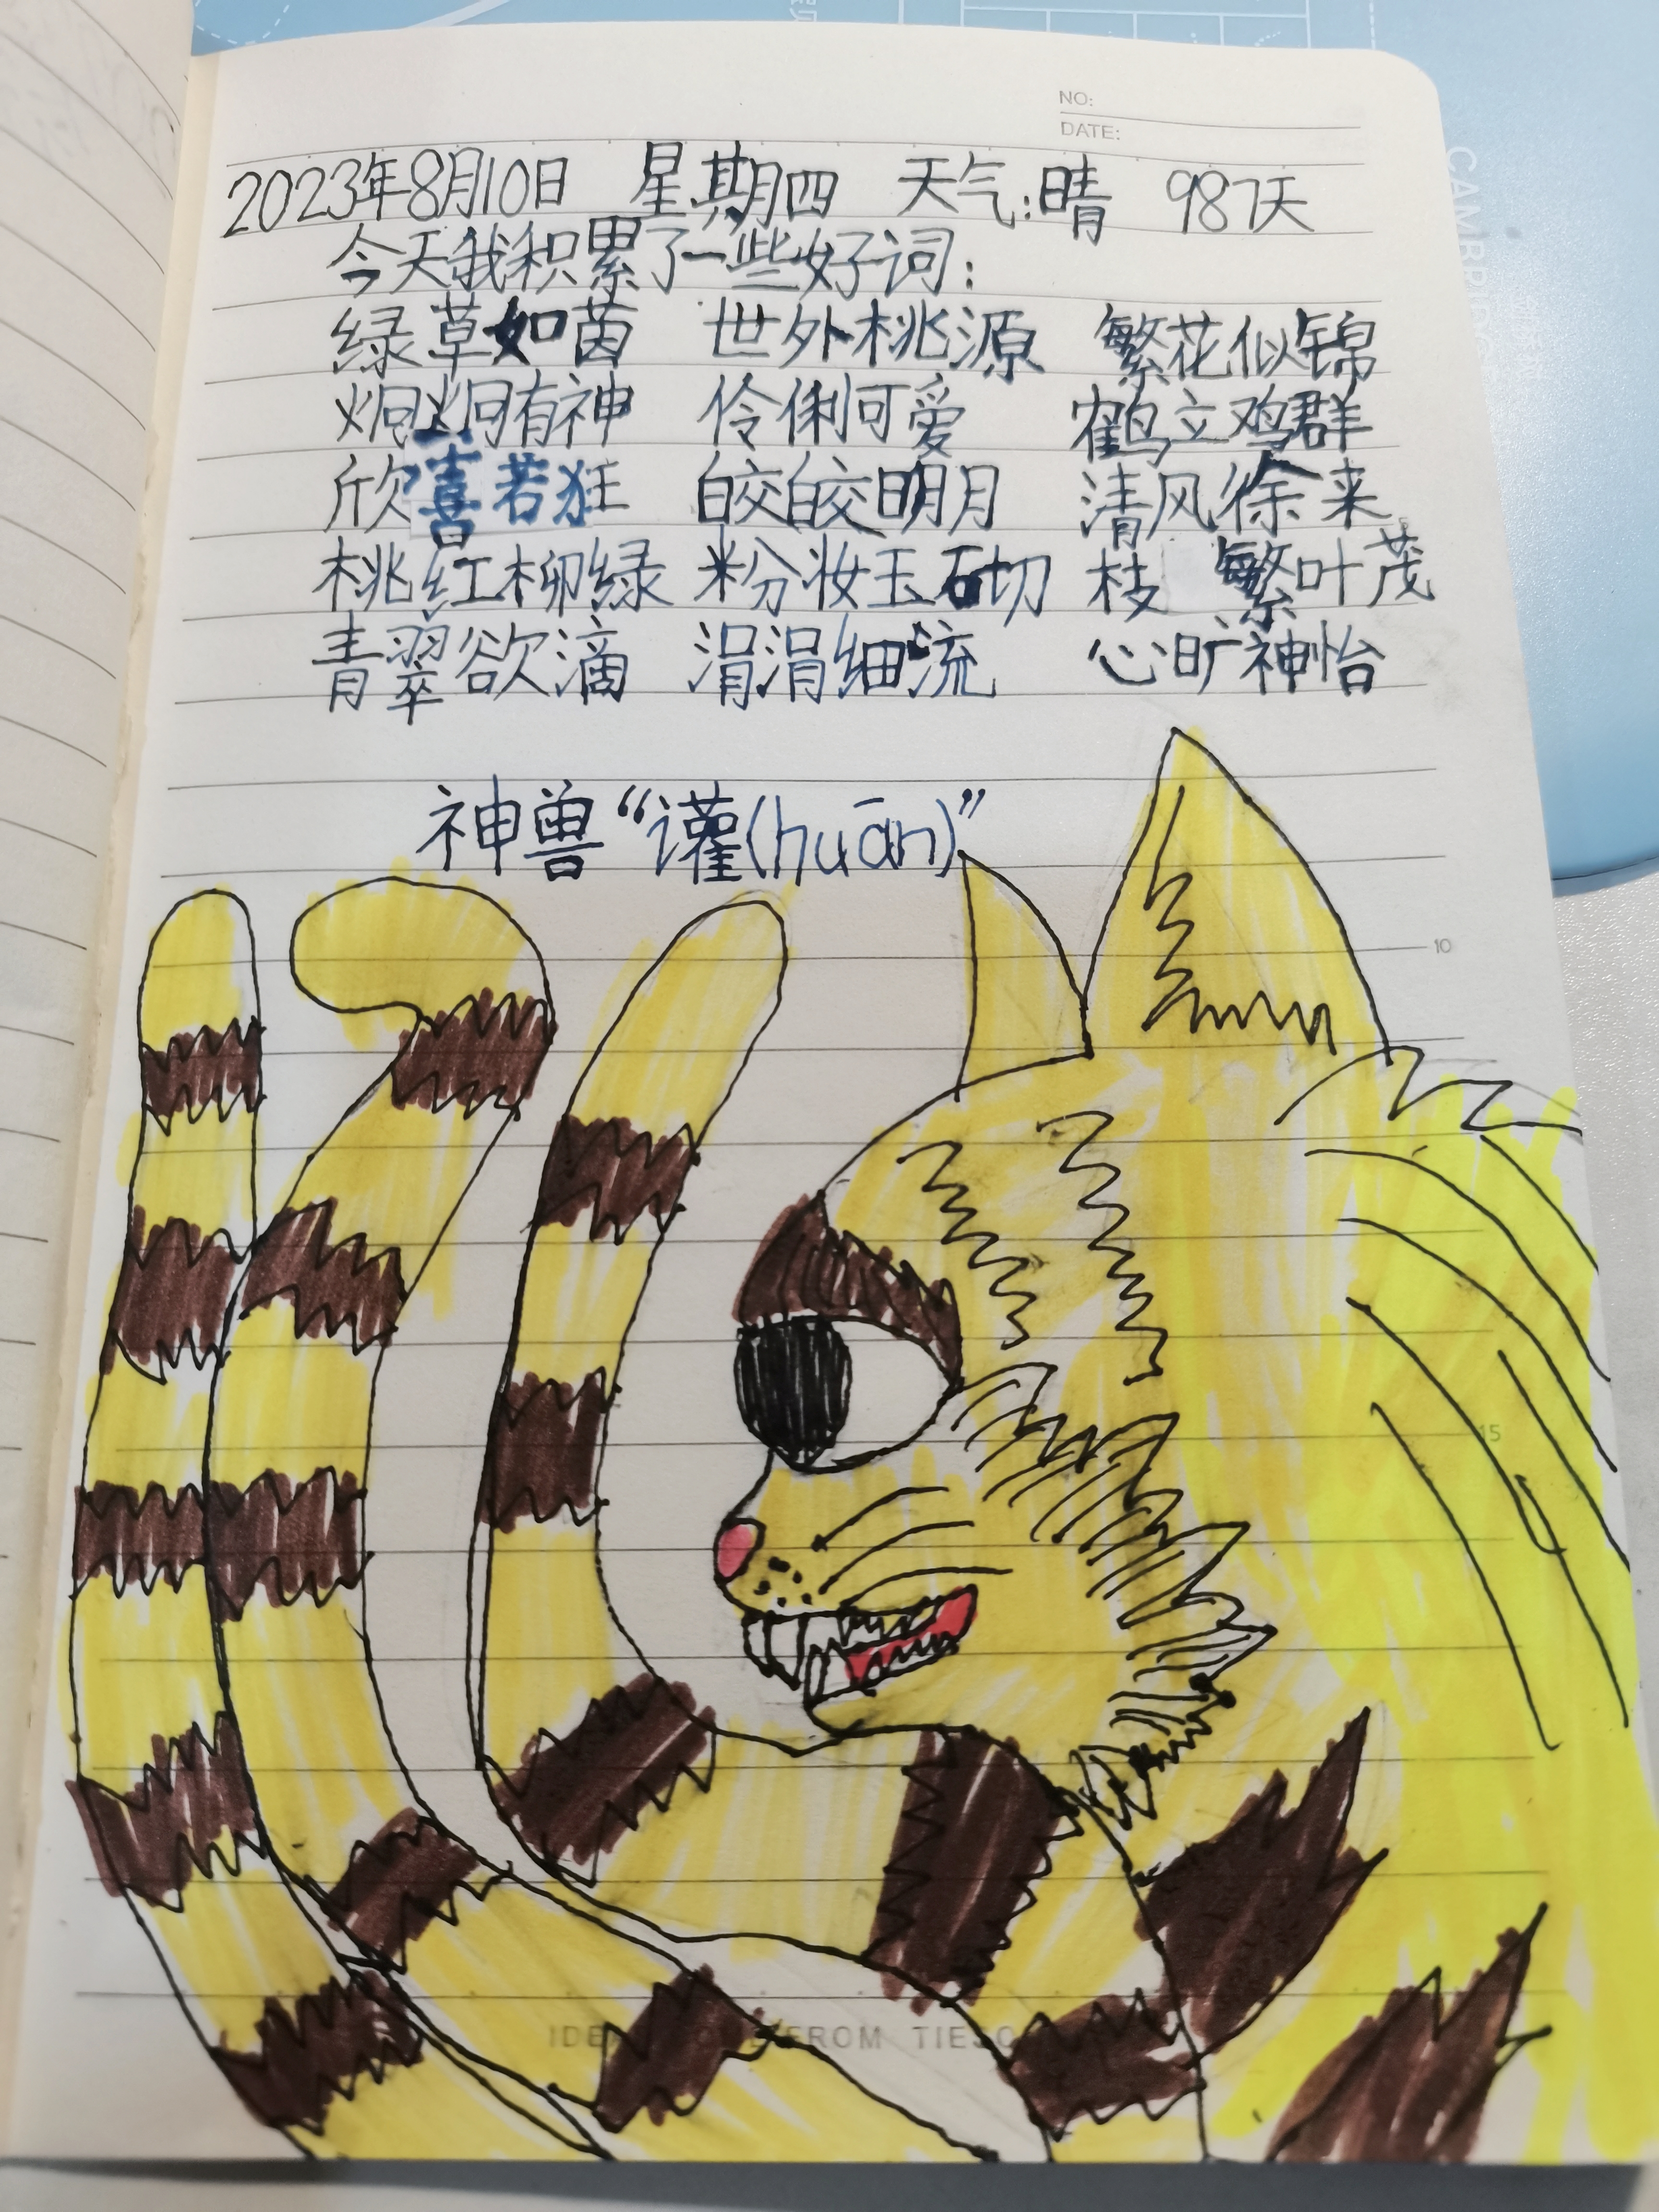 NO:
DATE:
2023年8月10日 星期四 天气:晴 987天
今天我积累了一些好词:
绿草如茵 世外桃源 繁花似锦
炯炯有神 伶俐可爱 鹤立鸡群
欣喜若狂 皎皎明月 清风徐来
桃红柳绿 粉妆玉砌 枝繁叶茂
青翠欲滴 涓涓细流 心旷神怡
神兽“讙(huān)”
10
15
FROM TIESO